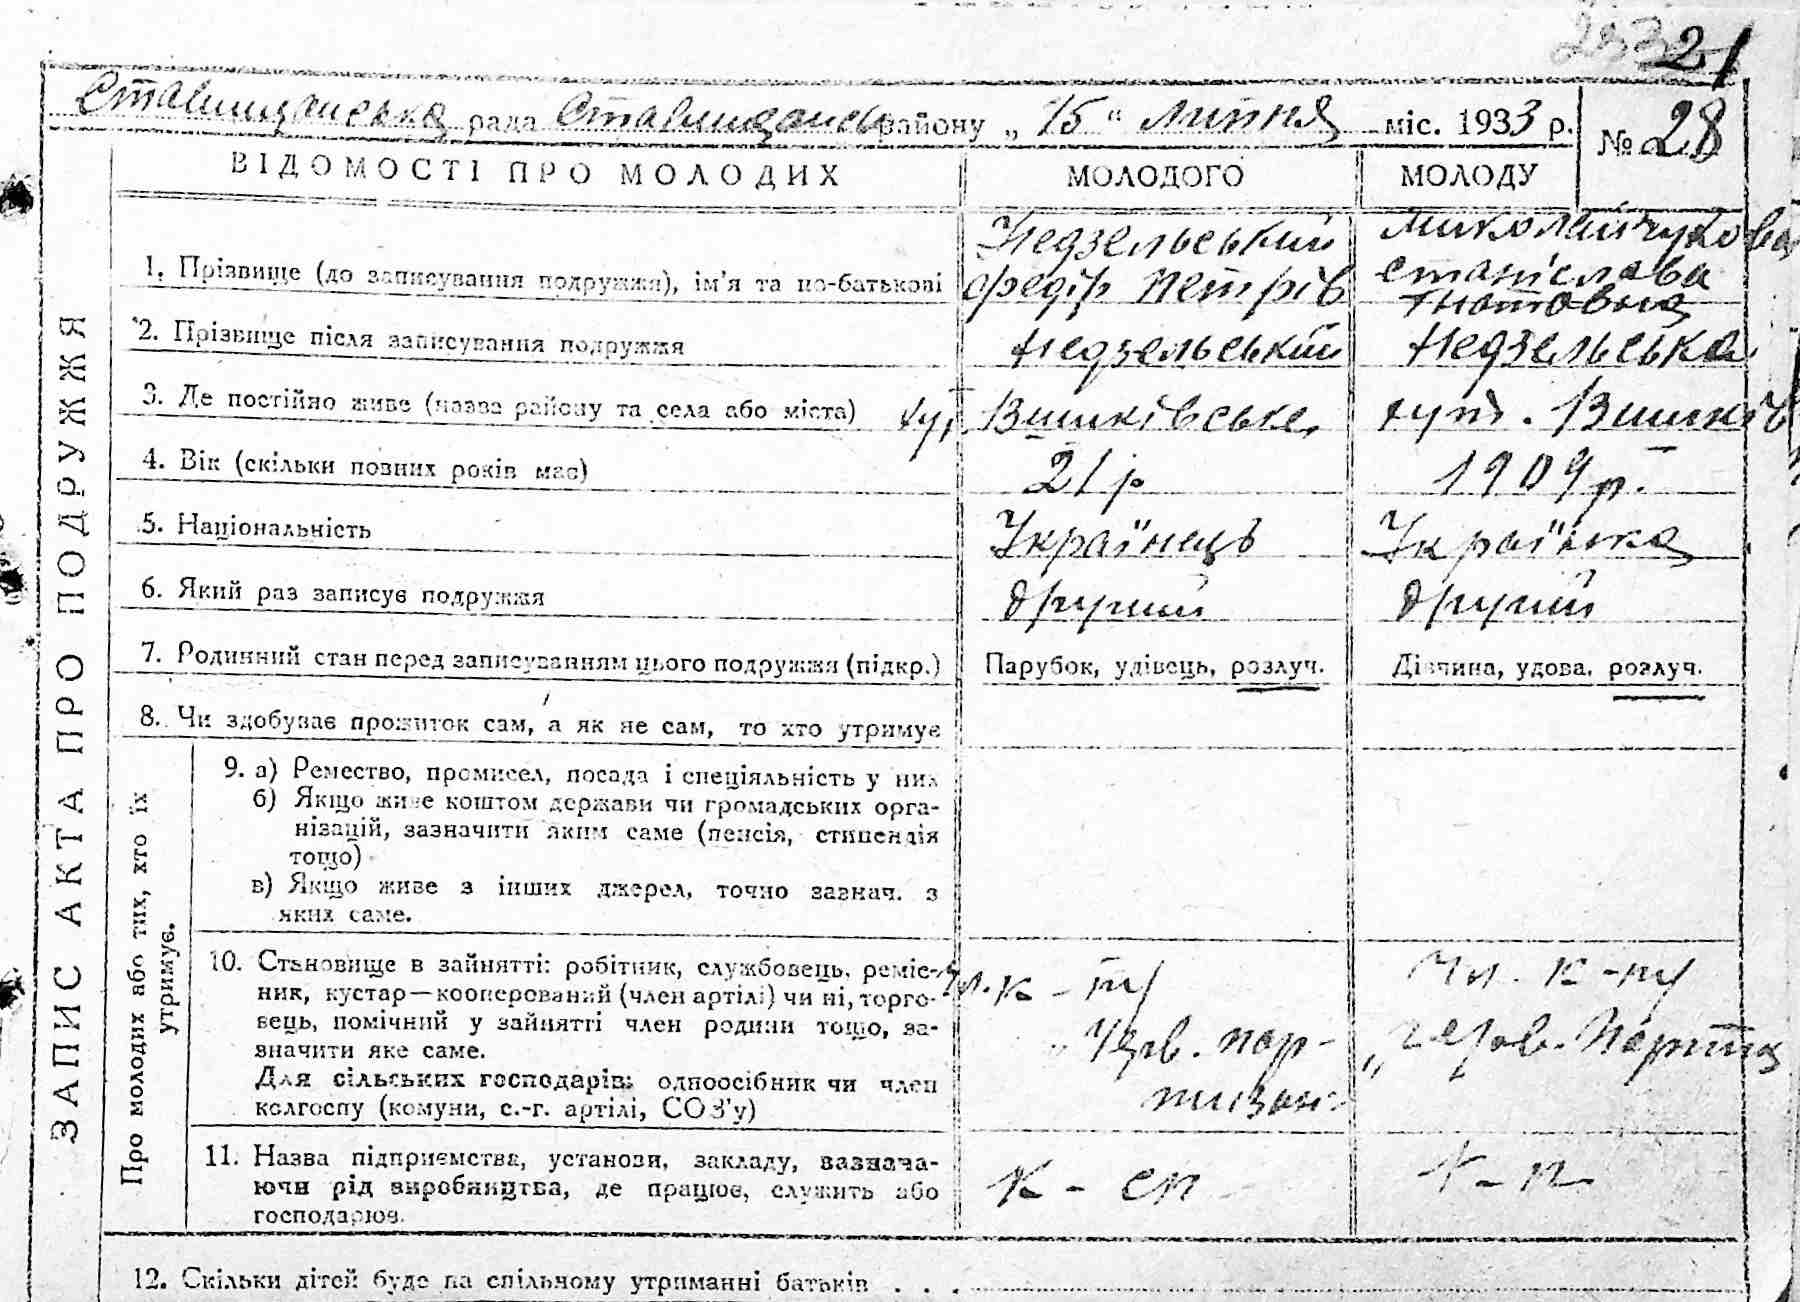 21
Ставищанська рада Ставищанськ району „15" Липня міс. 1933 р.
№ 28
ВІДОМОСТІ ПРО МОЛОДИХ МОЛОДОГО МОЛОДУ
ЗАПИС АКТА ПРО ПОДРУЖЖЯ
1. Прізвище (до записування подружжя), ім'я та по-батькові
Недзельський
Федір Петрів
Миколайчукова
Станіслава
Гнатовна
2. Прізвище після записування подружжя Недзельський Недзельська
3. Де постійно живе (назва району та села або міста) хут Вишківське хут. Вишків
4. Вік (скільки повних років має) 21 р 1909 р.
5. Національність Українець Українка
6. Який раз записує подружжя другий другий
7. Родинний стан перед записуванням цього подружжя (підкр.) Парубок, удівець, розлуч. Дівчина, удова, розлуч.
8. Чи здобуває прожиток сам, а як не сам, то хто утримує
Про молодих або тих, хто їх
утримує.
9. а) Ремество, промисел, посада і спеціяльність у них
б) Якщо живе коштом держави чи громадських орга-
нізацій, зазначити яким саме (пенсія, стипендія
тощо)
в) Якщо живе з інших джерел, точно зазнач. з
яких саме.
10. Становище в зайнятті: робітник, службовець, реміс-
ник, кустар—кооперований (член артілі) чи ні, торго-
вець, помічний у зайнятті член родини тощо, за-
значити яке саме.
Для сільських господарів: одноосібник чи член
колгоспу (комуни, с.-г. артілі, СОЗ'у)
Чл. к-пу
„Черв. пар-
тизан"
Чл. к-пу
„Черв. Партиз
11. Назва підприємства, установи, закладу, зазнача-
ючи рід виробництва, де працює, служить або
господарює.
к - сп
к - п
12. Скільки дітей буде на спільному утриманні батьків . . .